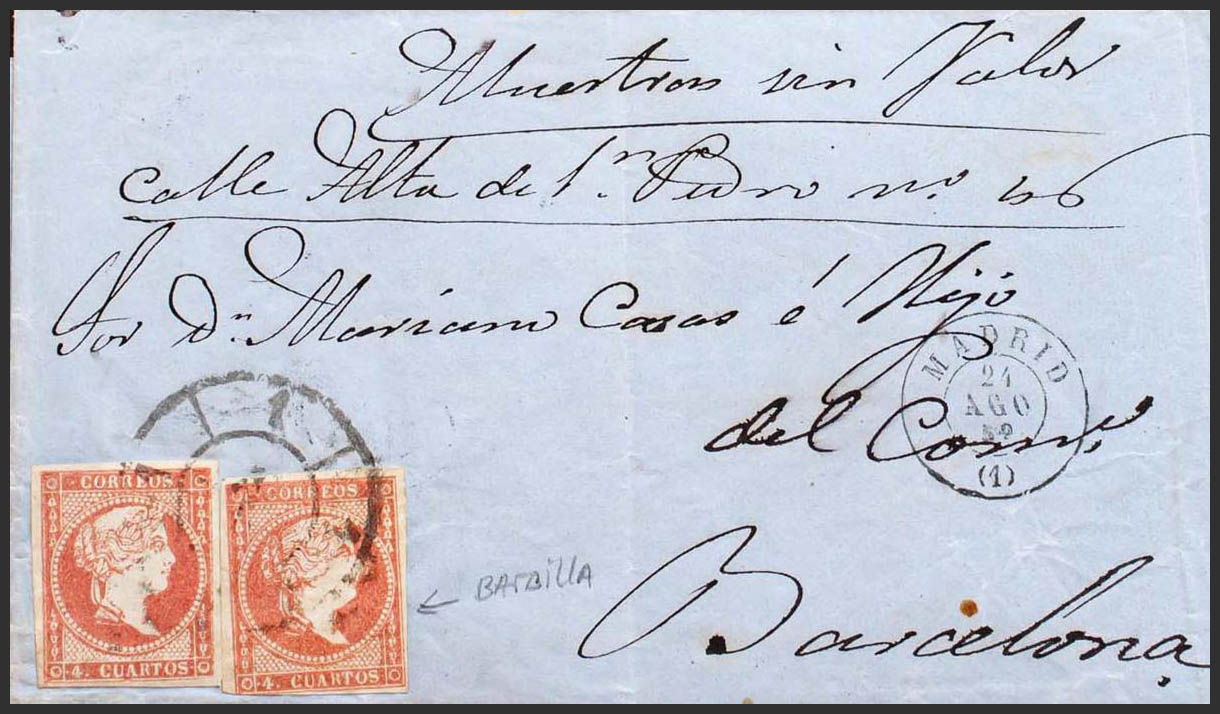 Muestras sin Valor
calle Alta de Sn. Pedro no.
Sor Dn. Mariano Casas é Hijo
del Comº.
Barcelona
MADRID
AGO
(1)
CORREOS
4. CUARTOS
CORREOS
4. CUARTOS
← BARBILLA